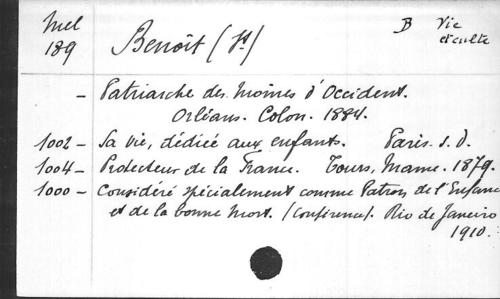 Mel
189
Benoît (St)
B Vie
et culte
- Patriarche des Moines d'Occident.
Orléans. Colon. 1884.
1002 - Sa vie, dédiée aux enfants. Paris. s. d.
1004 - Protecteur de la France. Tours, Mame. 1879.
1000 - Considéré spécialement comme Patron de l'Enfance
et de la bonne mort. (Conférence). Rio de Janeiro
1910.